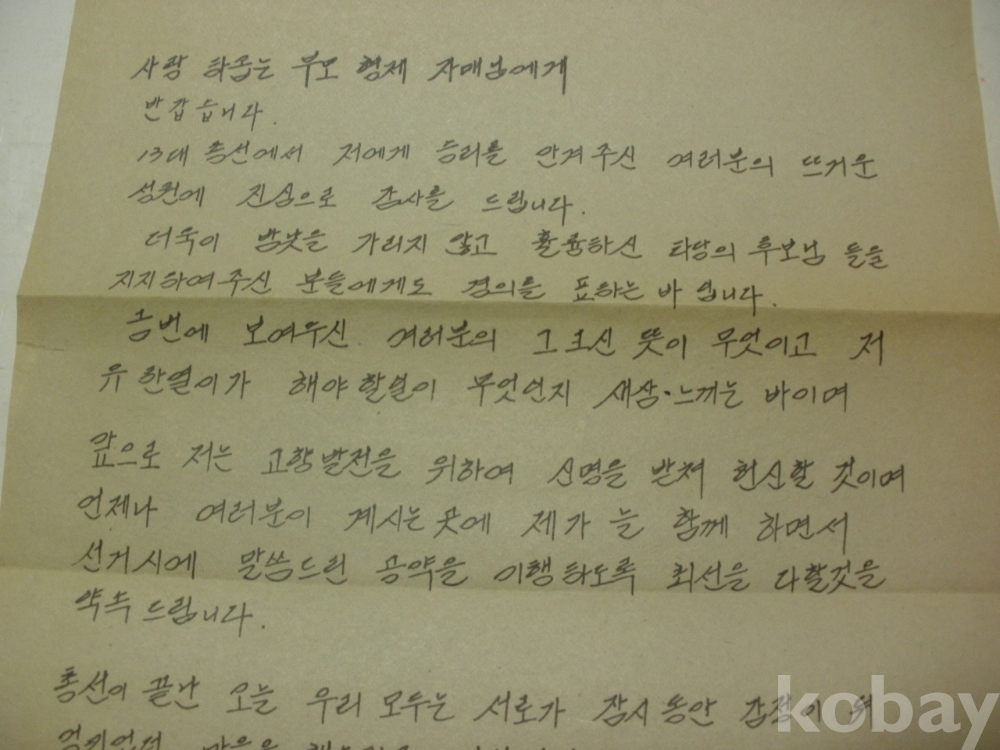 사랑 하옵는 부모 형제 자매님에게
반갑습니다.
13대 총선에서 저에게 승리를 안겨주신 여러분의 뜨거운
성원에 진심으로 감사를 드립니다.
더욱이 밤낮을 가리지 않고 훌륭하신 타당의 후보님 들을
지지하여주신 분들에게도 경의를 표하는 바 입니다.
금번에 보여주신 여러분의 그 크신 뜻이 무엇이고 저
유한열이가 해야 할일이 무엇인지 새삼 느끼는 바이며
앞으로 저는 고향발전을 위하여 신명을 받쳐 헌신할 것이며
언제나 여러분이 계시는 곳에 제가 늘 함께 하면서
선거시에 말씀드린 공약을 이행하도록 최선을 다할것을
약속 드립니다.
총선이 끝난 오늘 우리 모두는 서로가 잠시 동안 감정이
마음을
kobay